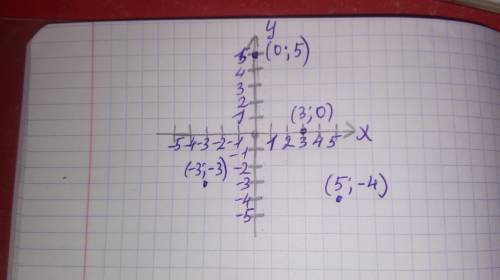 y
5 (0;5)
4
3
2
1 (3;0)
-5 -4 -3 -2 -1 1 2 3 4 5 x
-1
(-3;-3) -2
-3 (5;-4)
-4
-5